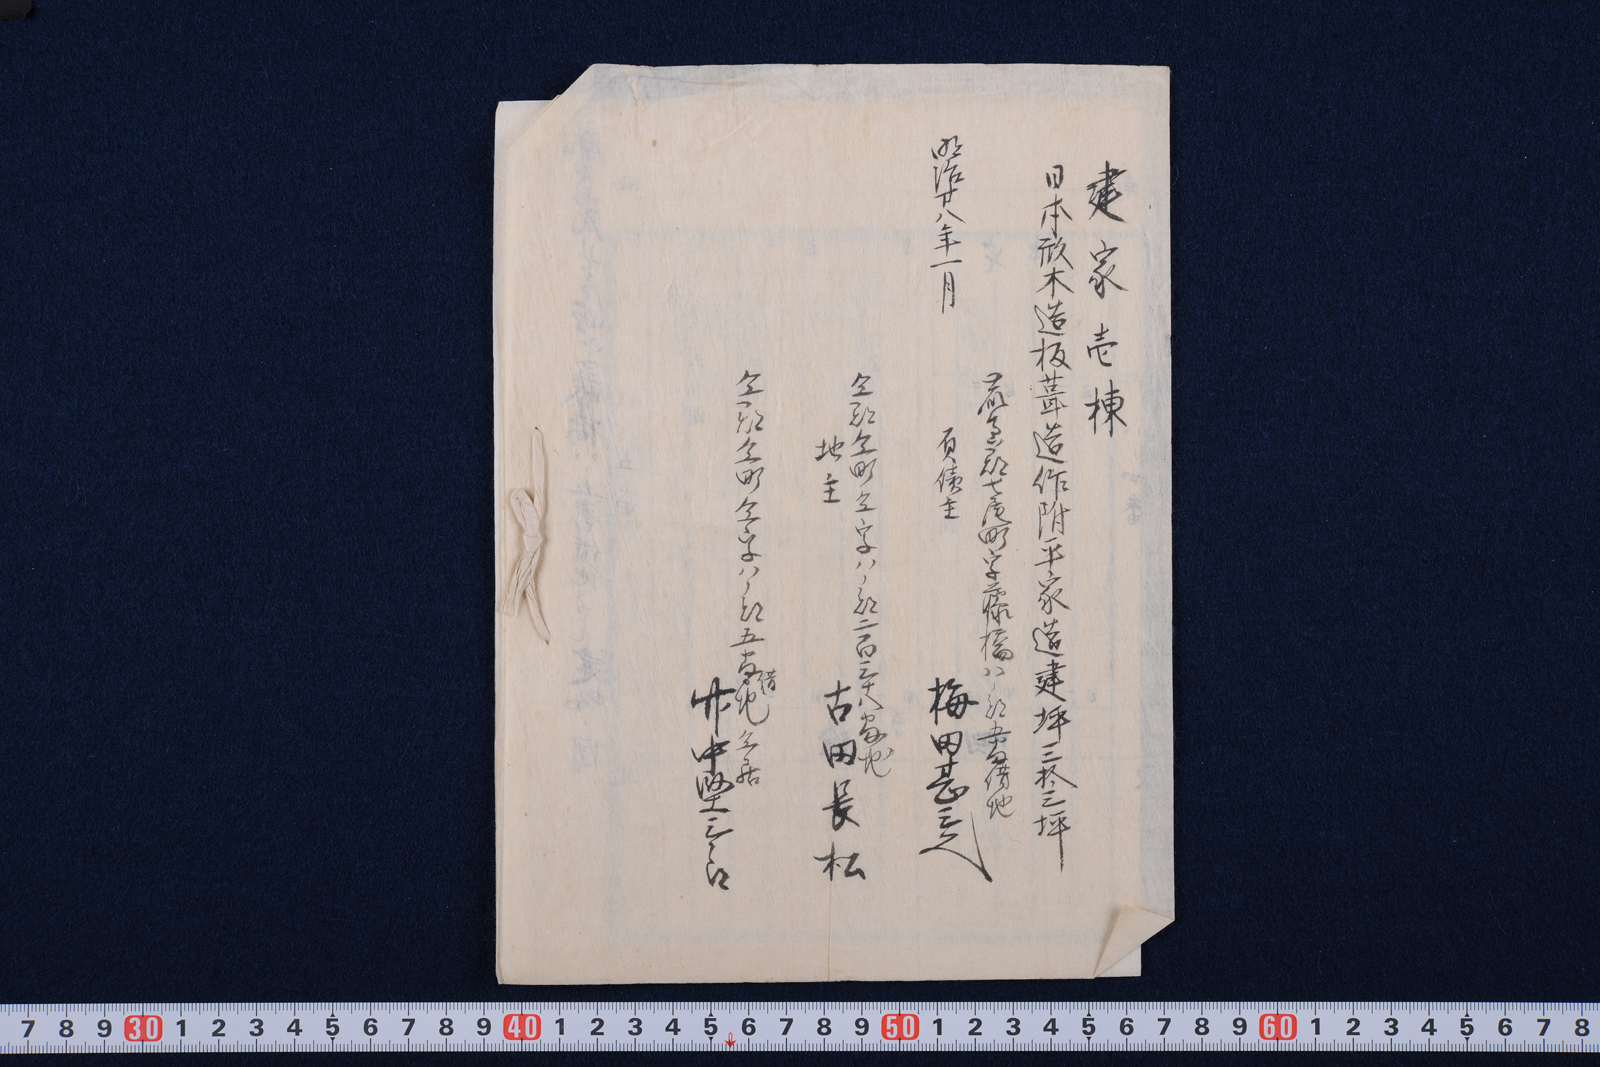 建家壱棟
日本形木造板葺造作附平家造建坪三拾三坪
明治廿八年一月
町字藤橋八ノ割五番借地
負債主
梅田甚三久
仝郡仝町仝字八ノ割二百三十八番地
地主
古田長松
仝郡仝町仝字八ノ割五番借地仝居
竹中堅三郎
7 8 9 30 1 2 3 4 5 6 7 8 9 40 1 2 3 4 5 6 7 8 9 50 1 2 3 4 5 6 7 8 9 60 1 2 3 4 5 6 7 8